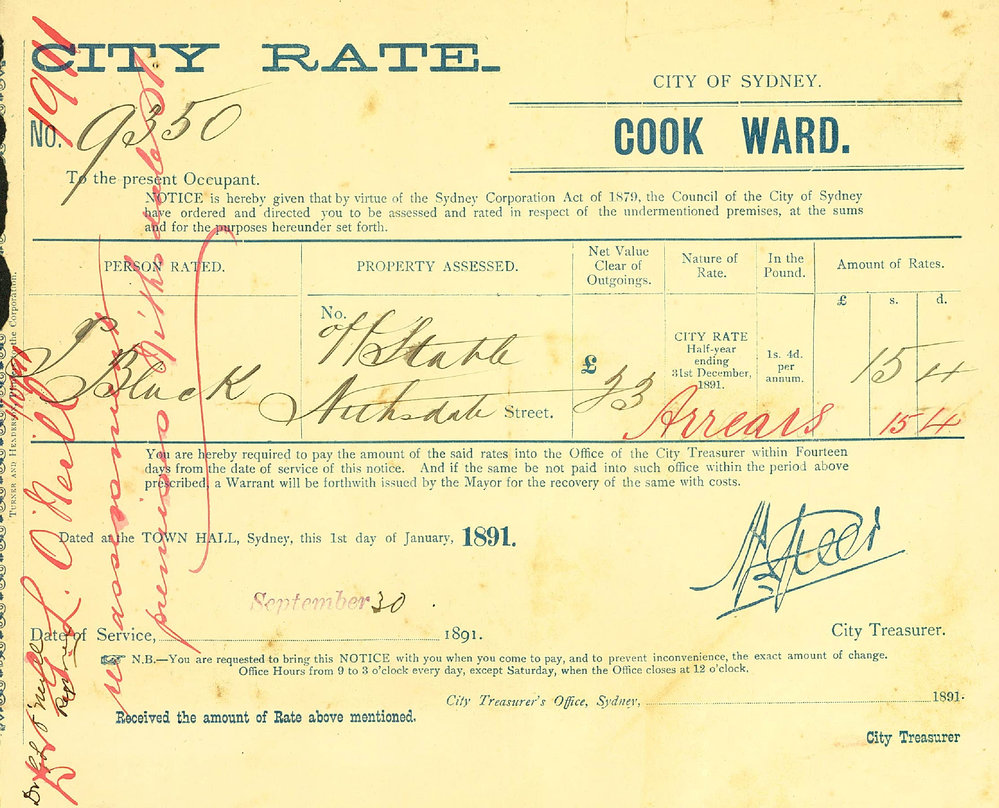 CITY RATE.
No. 9350
CITY OF SYDNEY.
COOK WARD.
To the present Occupant.
NOTICE is hereby given that by virtue of the Sydney Corporation Act of 1879, the Council of the City of Sydney
have ordered and directed you to be assessed and rated in respect of the undermentioned premises, at the sums
and for the purposes hereunder set forth.
PERSON RATED.
PROPERTY ASSESSED.
Net Value
Clear of
Outgoings.
Nature of
Rate.
In the
Pound.
Amount of Rates.
£ s. d.
Black
No.
off Stable
Nithsdale Street.
£ 23
CITY RATE
Half-year
ending
31st December,
1891.
1s. 4d.
per
annum.
15 4
Arrears 15 4
You are hereby required to pay the amount of the said rates into the Office of the City Treasurer within Fourteen
days from the date of service of this notice. And if the same be not paid into such office within the period above
prescribed, a Warrant will be forthwith issued by the Mayor for the recovery of the same with costs.
Dated at the TOWN HALL, Sydney, this 1st day of January, 1891.
September 30
Date of Service, 1891.
City Treasurer.
N.B.—You are requested to bring this NOTICE with you when you come to pay, and to prevent inconvenience, the exact amount of change.
Office Hours from 9 to 3 o'clock every day, except Saturday, when the Office closes at 12 o'clock.
City Treasurer's Office, Sydney, 1891.
Received the amount of Rate above mentioned.
City Treasurer
L. O'Neill
re assessment
premises Nithsdale St